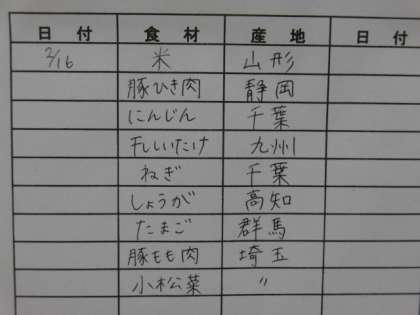 日付 食材 産地 日付
2/16 米 山形
豚ひき肉 静岡
にんじん 千葉
干しいたけ 九州
ねぎ 千葉
しょうが 高知
たまご 群馬
豚もも肉 埼玉
小松菜 〃